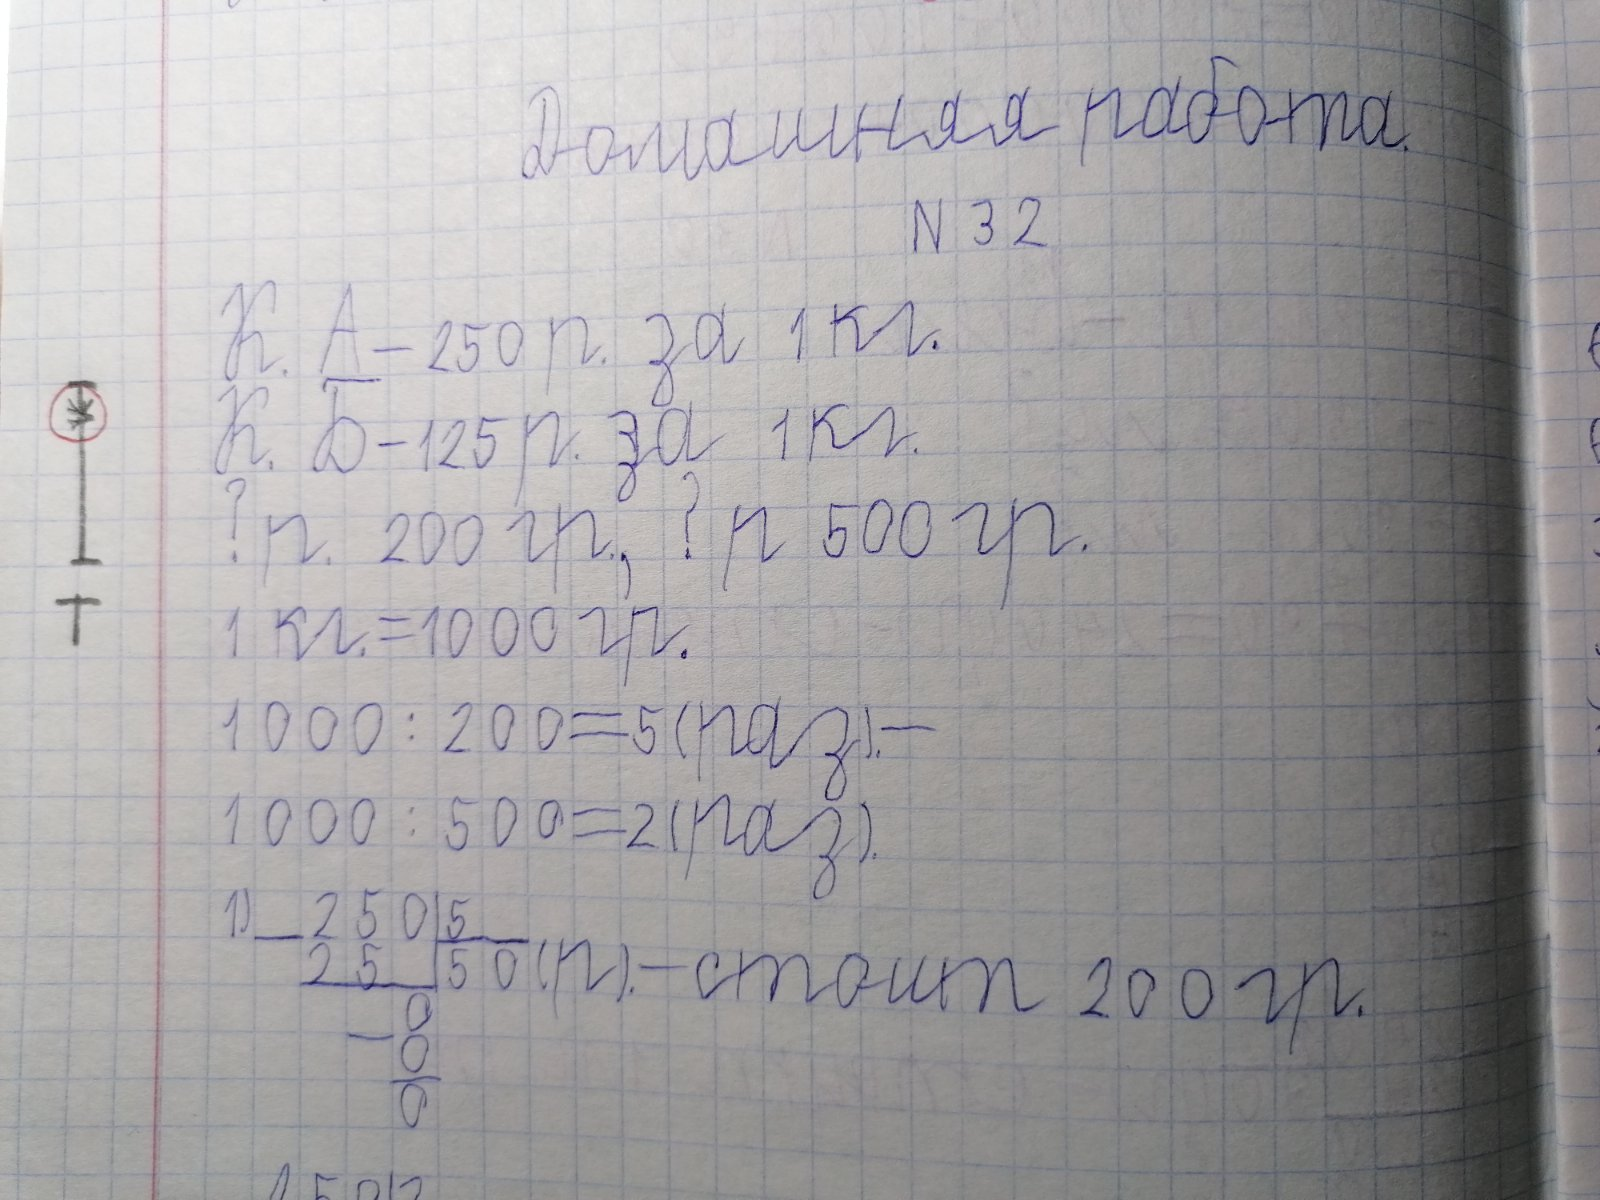 Домашняя работа.
N 32
К. А – 250 р. за 1 кг.
К. Б – 125 р. за 1 кг.
? р. 200 гр., ? р 500 гр.
1 кг. = 1000 гр.
1000 : 200 = 5 (раз). –
1000 : 500 = 2 (раз).
1) – 250 | 5
25 | 50 (р). – стоит 200 гр.
0
– 0
0